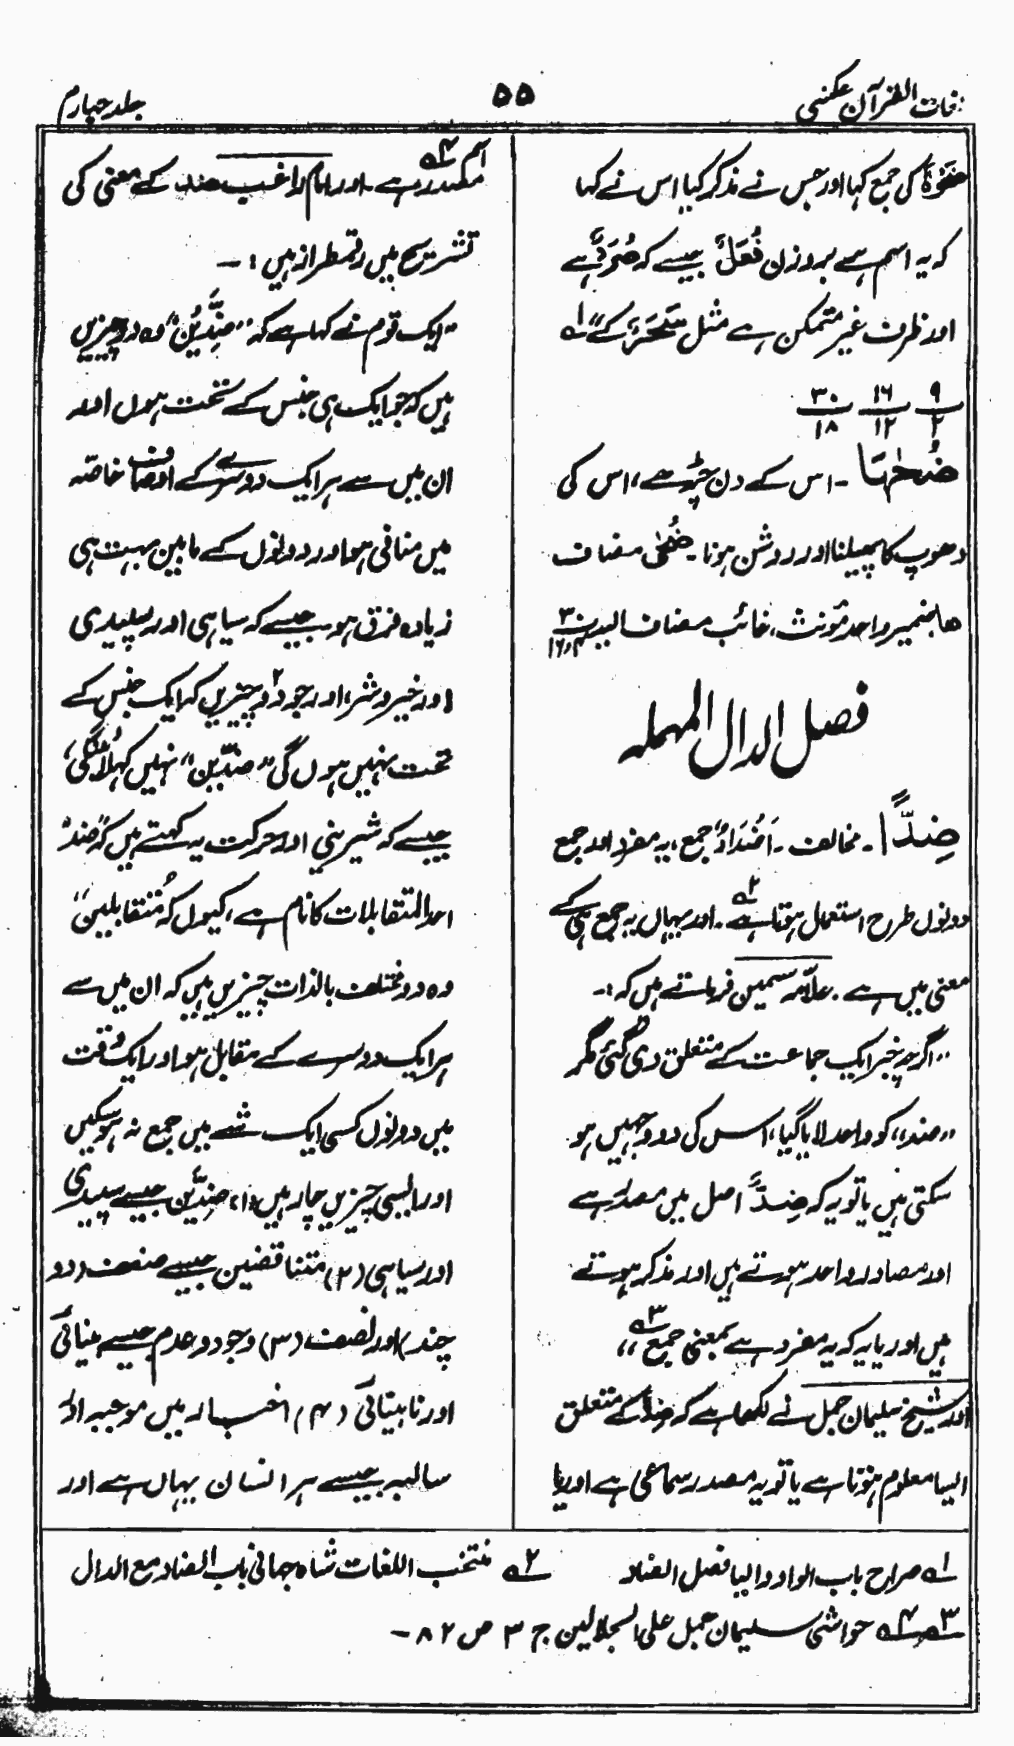 لغات القرآن عکسی
۵۵
جلد چہارم
ضَحْوَۃٌ کی جمع کہا اور جس نے مذکر کیا اس نے کہا
کہ یہ اسم ہے بروزن فُعَلٌ جیسے کہ صُرَدٌ ہے
اور ظرف غیر متمکن ہے مثل سَحَرَ کے" ۱ـہ
۹/۲ ۱۶/۱۲ ۳۰/۱۸
ضُحٰہَا ۔ اس کے دن چڑھے، اس کی
دھوپ کا پھیلنا اور روشن ہونا ۔ ضُحٰی مضاف
ھا ضمیر واحد مؤنث، غائب مضاف الیہ ۳۰/۱۶٫۴
فصل الدال المہملہ
ضِدًّا ۔ مخالف ۔ اَضْدَادٌ جمع، یہ مفرد اور جمع
دونوں طرح استعمال ہوتا ہے ۲ـہ ۔ اور یہاں یہ جمع ہی کے
معنی میں ہے ۔ علامہ سمین فرماتے ہیں کہ :۔
"اگرچہ خبر ایک جماعت کے متعلق دی گئی مگر
"ضد" کو واحد لایا گیا، اس کی دو وجہیں ہو
سکتی ہیں یا تو یہ کہ ضِدًّ اصل میں مصدر ہے
اور مصادر واحد ہوتے ہیں اور مذکر ہوتے
ہیں اور یا یہ کہ یہ مفرد ہے بمعنی جمع ۳ـہ"
اور شیخ سلیمان جمل نے لکھا ہے کہ ضِدًّ کے متعلق
ایسا معلوم ہوتا ہے یا تو یہ مصدر سماعی ہے اور یا
اسم مصدر ہے ۴ـہ ۔ اور امام راغب ضد کے معنی کی
تشریح میں رقمطراز ہیں :۔
"ایک قوم نے کہا ہے کہ "ضِدَّیْن" وہ دو چیزیں
ہیں کہ جو ایک ہی جنس کے تحت ہوں اور
ان میں سے ہر ایک دوسرے کے اوصاف خاصّہ
میں منافی ہو اور دونوں کے مابین بہت ہی
زیادہ فرق ہو جیسے کہ سیاہی اور سپیدی
اور خیر و شر، اور جو دو چیزیں کہ ایک جنس کے
تحت نہیں ہوں گی "ضدّین" نہیں کہلائیں گی،
جیسے کہ شیرینی اور حرکت یہ کہتے ہیں کہ "ضد"
احد المتقابلات کا نام ہے، کیوں کہ "مُتقابلین"
وہ دو مختلف بالذات چیزیں ہیں کہ ان میں سے
ہر ایک دوسرے کے مقابل ہو اور ایک وقت
میں دونوں کسی ایک شے میں جمع نہ ہو سکیں
اور ایسی چیزیں چار ہیں (۱) ضِدَّین جیسے سپیدی
اور سیاہی (۲) متناقضین جیسے ضعف (دو
چند) اور نصف (۳) وجود و عدم جیسے بینائی
اور نابینائی (۴) اخبار میں موجبہ اور
سالبہ جیسے ہر انسان یہاں ہے اور
۱ـہ صراح باب الواو والیا فصل الضاد ۲ـہ منتخب اللغات شاہ جہانی باب الضاد مع الدال
۳ـہ ۴ـہ حواشی سلیمان جمل علی الجلالین ج ۳ ص ۸۲ ۔